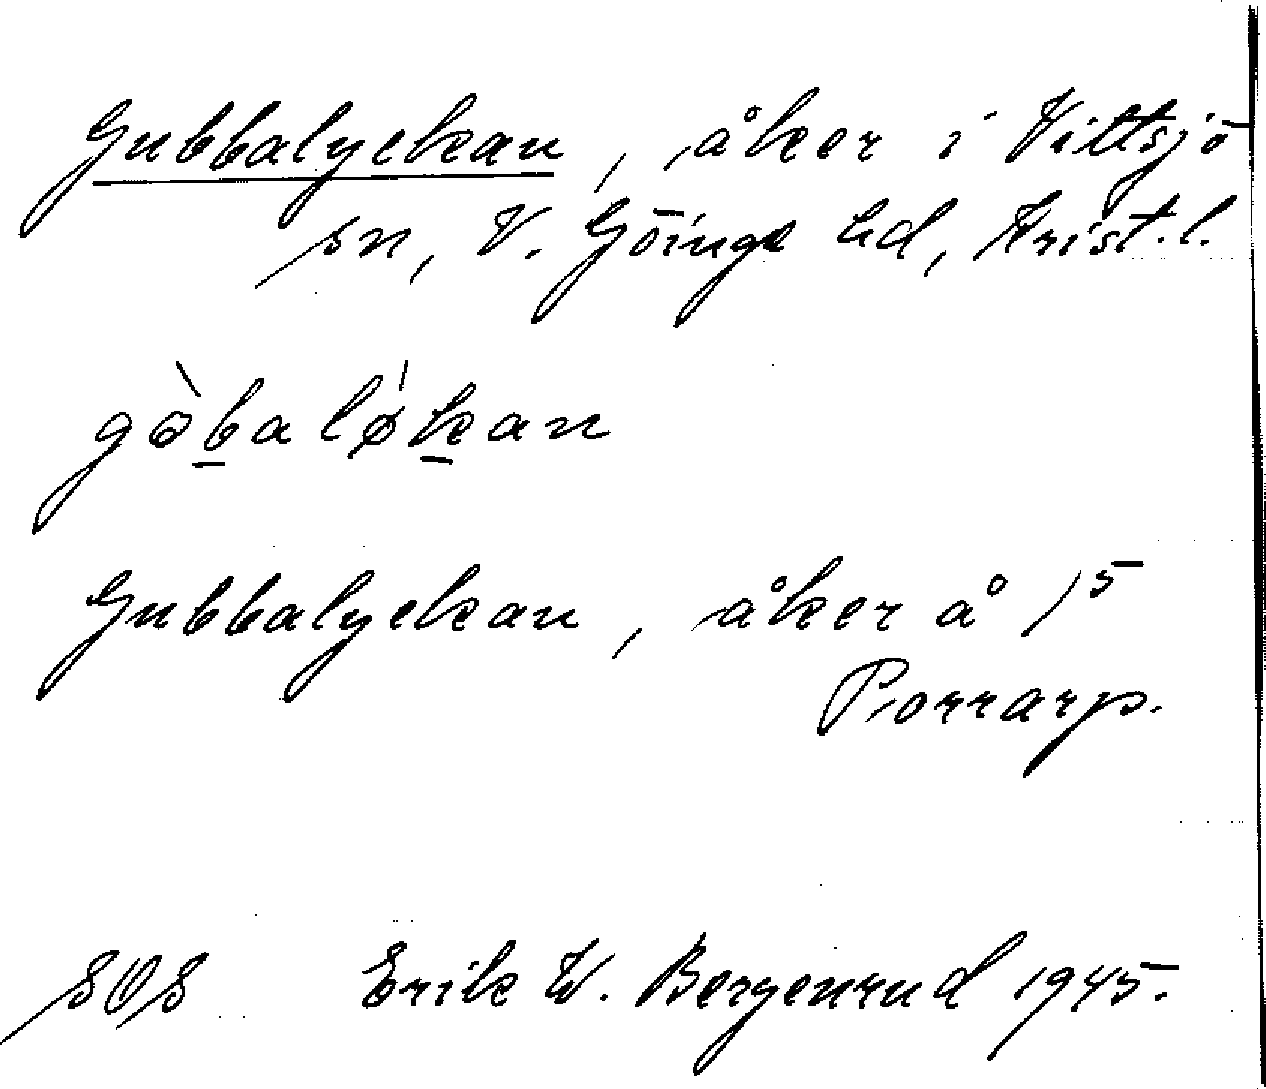 Gubbalyckan, åker i Vittsjö
sn, V. Göinge hd, Krist. l.
gòbaløkan
Gubbalyckan, åker å 1⁵
Porrarp.
SOS Erik W. Bergenrud 1945.